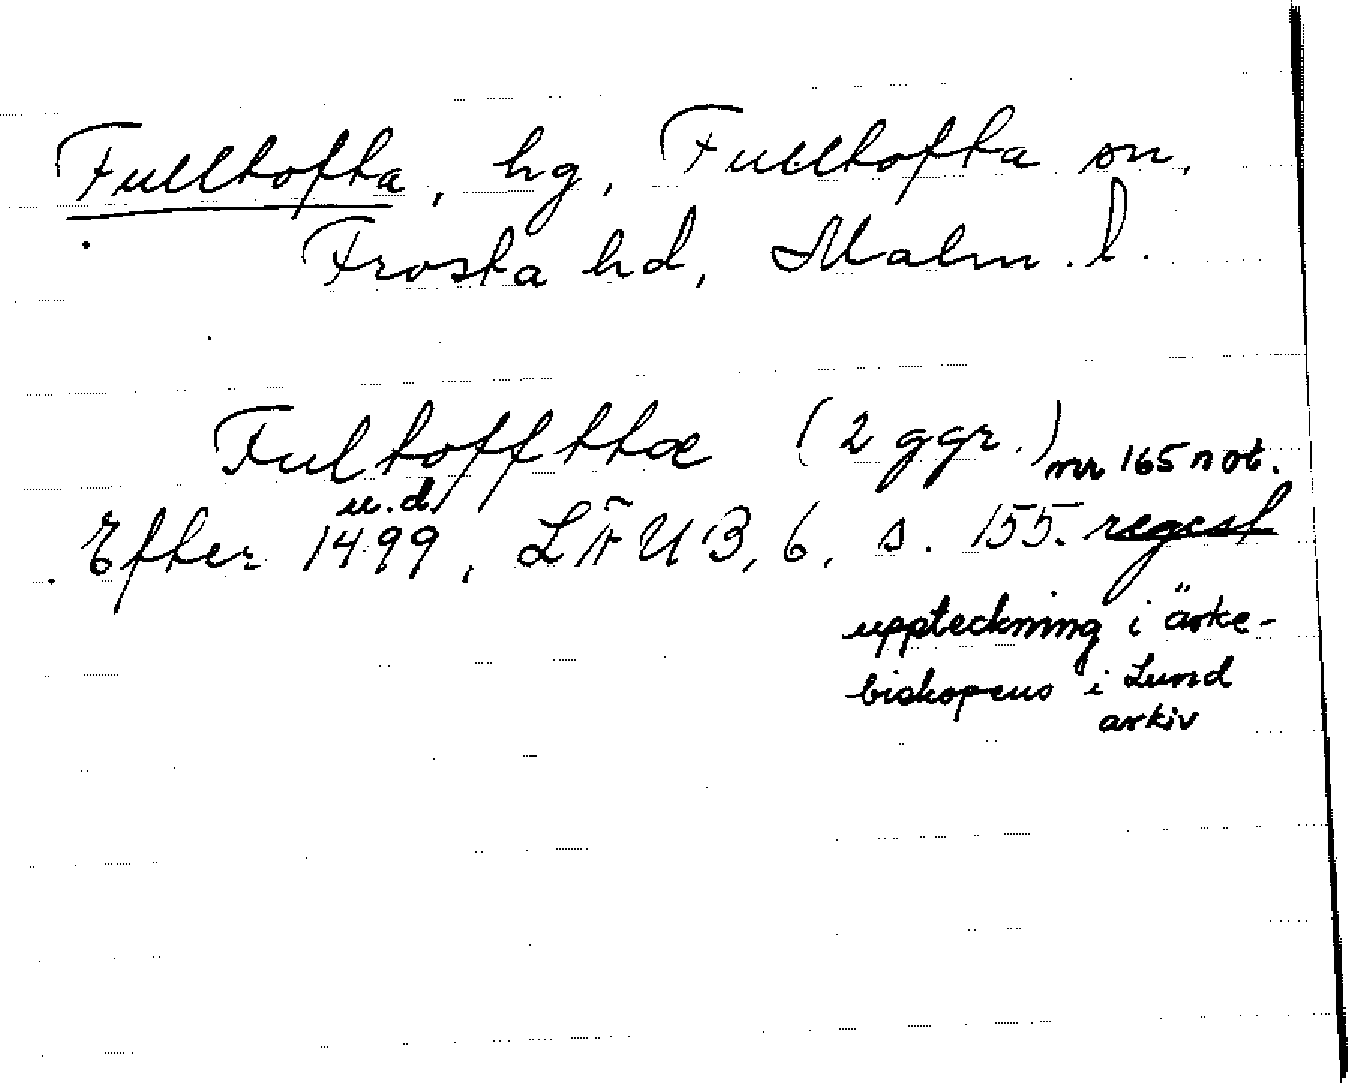 Fulltofta, hg, Fulltofta sn,
Frosta hd, Malm. l.
Fultoffthæ (2 ggr.) nr 165 not.
u.d.
Efter 1499, LÄUB, 6, s. 155. regest
uppteckning i ärke-
biskopens i Lund
arkiv